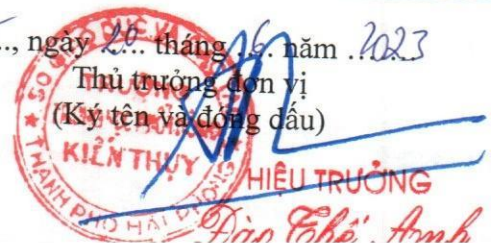 , ngày 20 tháng 6 năm 2023
Thủ trưởng đơn vị
(Ký tên và đóng dấu)
KIẾN THỤY
THÀNH PHỐ HẢI PHÒNG
HIỆU TRƯỞNG
Đào Thế Anh